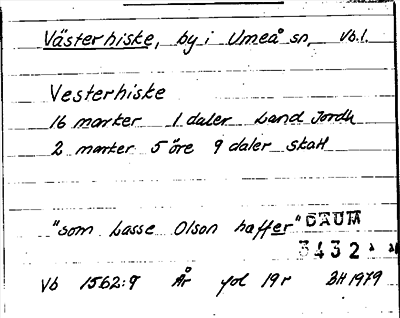 Västerhiske, by i Umeå sn, Vb.l.
Vesterhiske
16 marker 1 daler Land Jordh
2 marker 5 öre 9 daler skatt
"som Lasse Olson haffer" DAUM
3432
Vb 1562:9 År fol 19r BH 1979